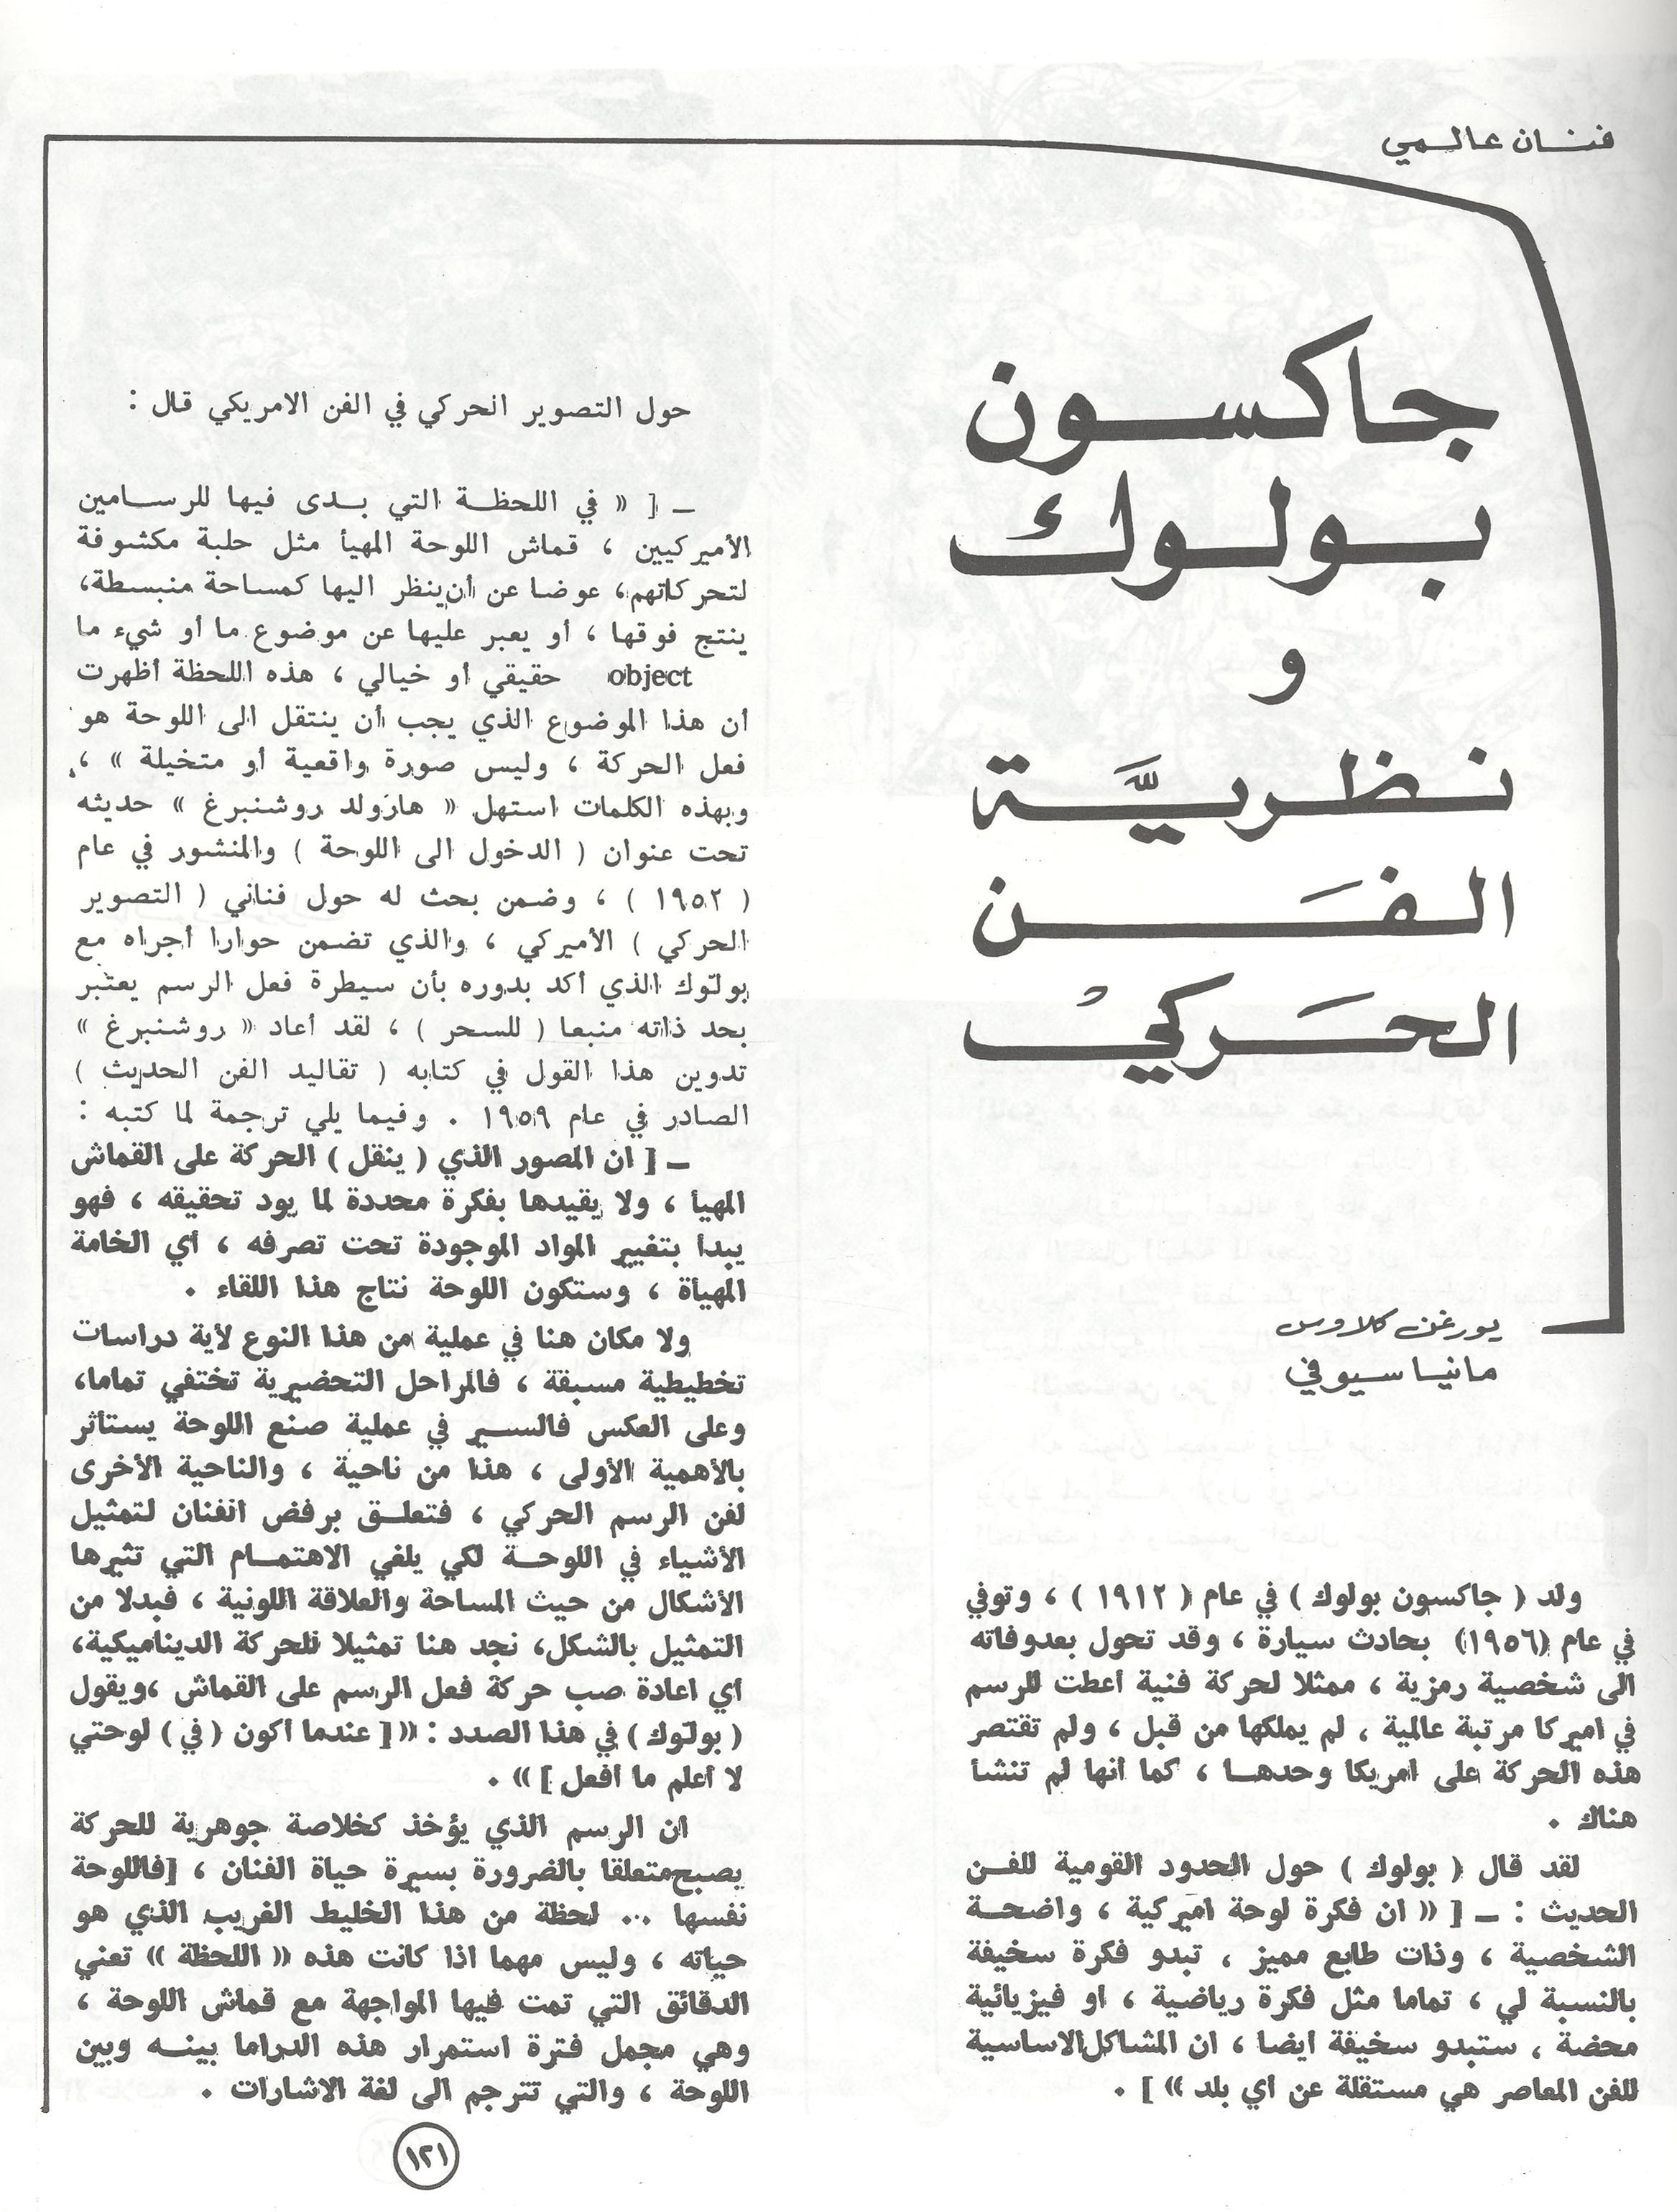 فنان عالمي
جاكسون
بولوك
و
نظريَّة
الفَن
الحَركيْ
يورغن كلاوس
مانيا سيوفي
ولد ( جاكسون بولوك ) في عام ( ١٩١٢ ) ، وتوفي
في عام (١٩٥٦) بحادث سيارة ، وقد تحول بعدوفاته
الى شخصية رمزية ، ممثلا لحركة فنية أعطت للرسم
في اميركا مرتبة عالمية ، لم يملكها من قبل ، ولم تقتصر
هذه الحركة على امريكا وحدهــا ، كما أنها لم تنشأ
هناك .
لقد قال ( بولوك ) حول الحدود القومية للفــن
الحديث : ــ [ « ان فكرة لوحة اميركية ، واضحــة
الشخصية ، وذات طابع مميز ، تبدو فكرة سخيفة
بالنسبة لي ، تماما مثل فكرة رياضية ، او فيزيائية
محضة ، ستبدو سخيفة ايضا ، ان المشاكل الاساسية
للفن المعاصر هي مستقلة عن أي بلد » ] .
حول التصوير الحركي في الفن الامريكي قال :
ــ [ « في اللحظــة التي بــدى فيها للرســامين
الأميركيين ، قماش اللوحة المهيأ مثل حلبة مكشوفة
لتحركاتهم، عوضا عن أن ينظر اليها كمساحة منبسطة،
ينتج فوقها ، أو يعبر عليها عن موضوع ما أو شيء ما
object حقيقي أو خيالي ، هذه اللحظة أظهرت
أن هذا الموضوع الذي يجب أن ينتقل الى اللوحة هو
فعل الحركة ، وليس صورة واقعية أو متخيلة » ،
وبهذه الكلمات استهل « هارولد روشنبرغ » حديثه
تحت عنوان ( الدخول الى اللوحة ) والمنشور في عام
( ١٩٥٢ ) ، وضمن بحث له حول فناني ( التصوير
الحركي ) الأميركي ، والذي تضمن حوارا أجراه مع
بولوك الذي أكد بدوره بأن سيطرة فعل الرسم يعتبر
بحد ذاته منبعا ( للسحر ) ، لقد أعاد « روشنبرغ »
تدوين هذا القول في كتابه ( تقاليد الفن الحديث )
الصادر في عام ١٩٥٩ . وفيما يلي ترجمة لما كتبه :
ــ [ ان المصور الذي ( ينقل ) الحركة على القماش
المهيأ ، ولا يقيدها بفكرة محددة لما يود تحقيقه ، فهو
يبدأ بتغيير المواد الموجودة تحت تصرفه ، أي الخامة
المهيأة ، وستكون اللوحة نتاج هذا اللقاء .
ولا مكان هنا في عملية من هذا النوع لأية دراسات
تخطيطية مسبقة ، فالمراحل التحضيرية تختفي تماما،
وعلى العكس فالســير في عملية صنع اللوحة يستأثر
بالأهمية الأولى ، هذا من ناحية ، والناحية الأخرى
لفن الرسم الحركي ، فتعلــق برفض الفنان لتمثيل
الأشياء في اللوحــة لكي يلغي الاهتمــام التي تثيرها
الأشكال من حيث المساحة والعلاقة اللونية ، فبدلا من
التمثيل بالشكل، نجد هنا تمثيلا للحركة الديناميكية،
أي اعادة صب حركة فعل الرسم على القماش ،ويقول
( بولوك ) في هذا الصدد : «[ عندما أكون ( في ) لوحتي
لا أعلم ما أفعل ] » .
ان الرسم الذي يؤخذ كخلاصة جوهرية للحركة
يصبح متعلقا بالضرورة بسيرة حياة الفنان ، [فاللوحة
نفسها ... لحظة من هذا الخليط الغريب الذي هو
حياته ، وليس مهما اذا كانت هذه « اللحظة » تعني
الدقائق التي تمت فيها المواجهة مع قماش اللوحة ،
وهي مجمل فترة استمرار هذه الدراما بينــه وبين
اللوحة ، والتي تترجم الى لغة الاشارات .
١٢١